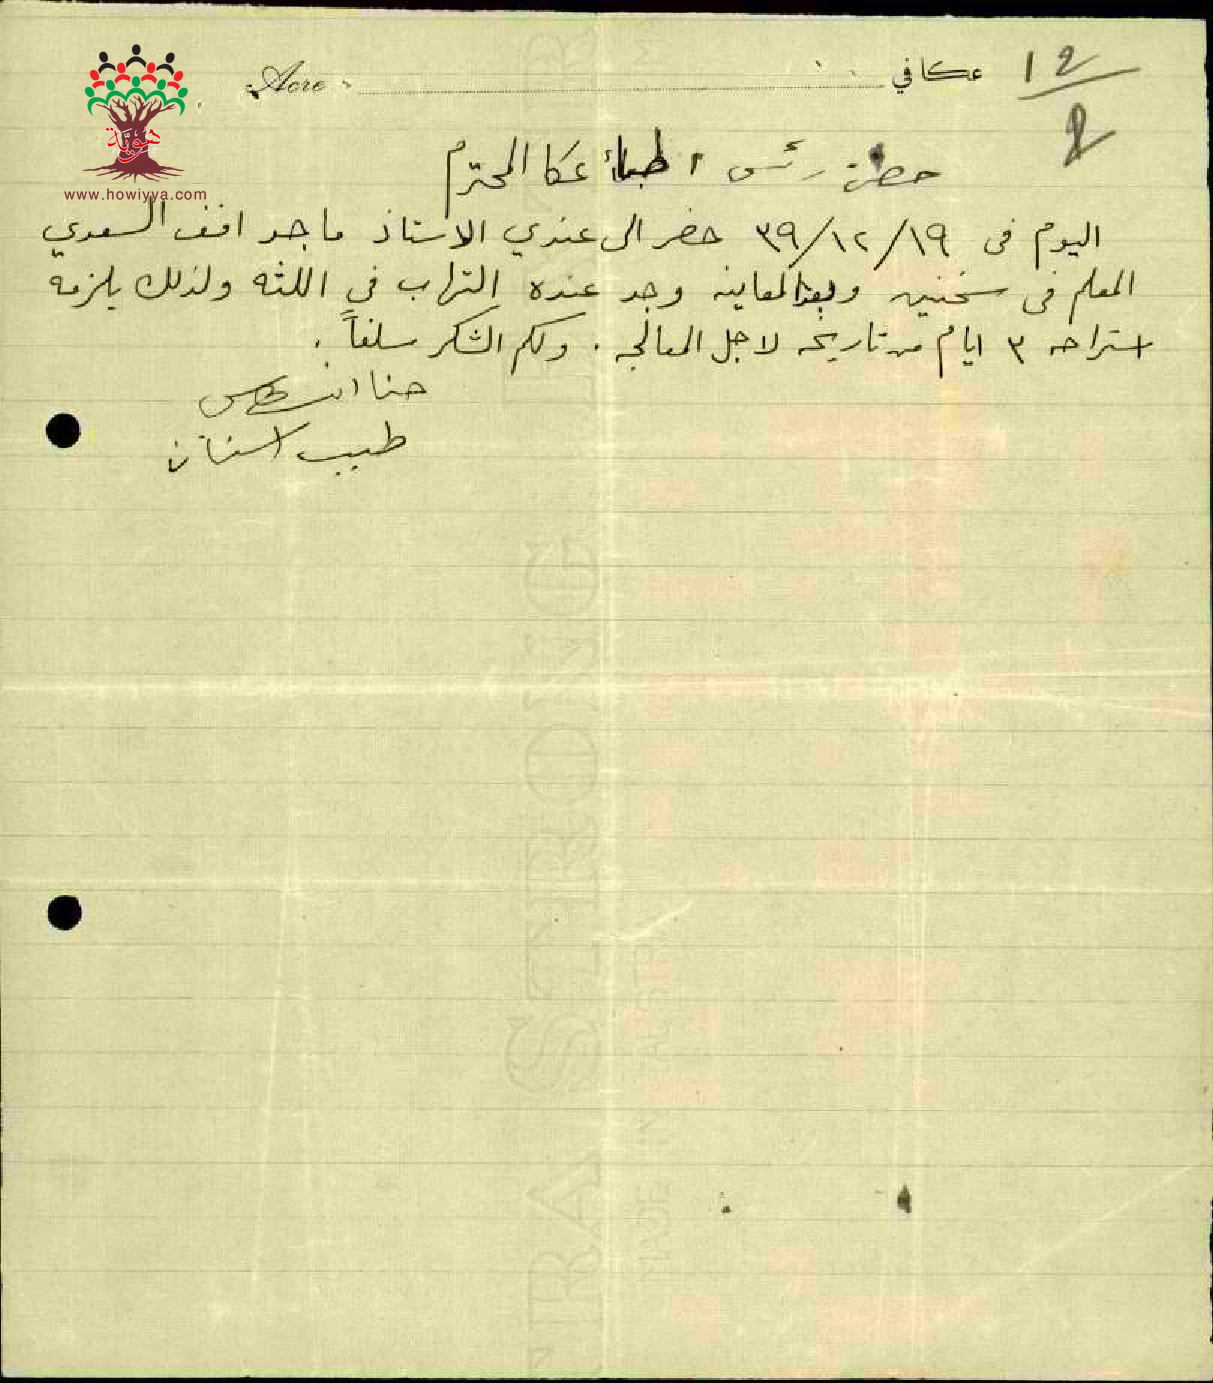 هوية
www.howiyya.com
Acre
عكا في
12
حضرة رئيس اطباء عكا المحترم
اليوم فى ١٩/١٢/٣٩ حضر الى عندي الاستاذ ماجد افند السعدي
المعلم فى سخنين وبعد المعاينه وجد عنده التهاب في اللثه ولذلك يلزمه
استراحه ٣ ايام من تاريخه لاجل المعالجه . ولكم الشكر سلفاً .
حنا
طبيب اسنان
EXTRA STRONG
MADE IN AUSTR